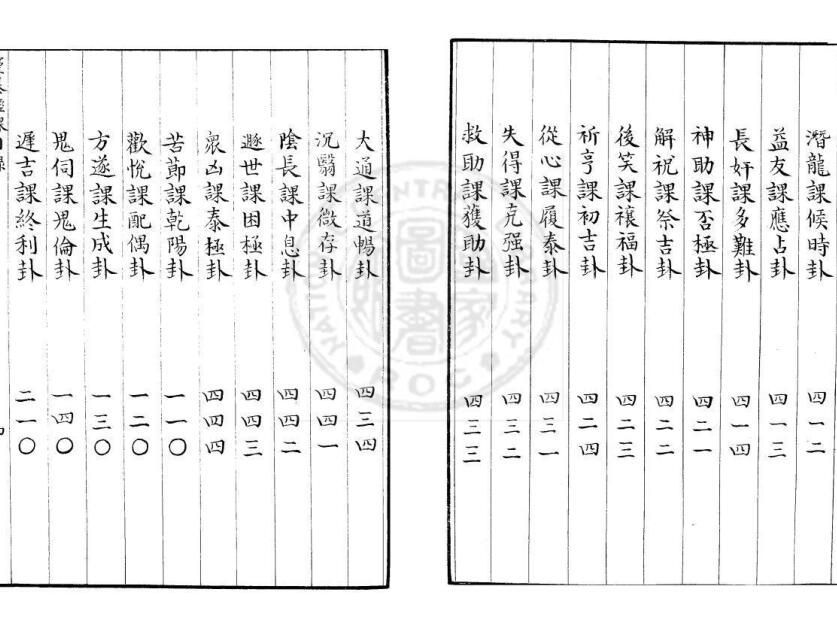 潛龍課候時卦 四一二
益友課應占卦 四一三
長奸課多難卦 四一四
神助課否極卦 四二一
解祝課祭吉卦 四二二
後笑課禳福卦 四二三
祈亨課初吉卦 四二四
從心課履泰卦 四三一
失得課克强卦 四三二
救助課獲助卦 四三三
大通課道暢卦 四三四
沉翳課微存卦 四四一
陰長課中息卦 四四二
遯世課困極卦 四四三
衆凶課泰極卦 四四四
苦節課乾陽卦 一一〇
歡悅課配偶卦 一二〇
方遂課生成卦 一三〇
鬼伺課鬼倫卦 一四〇
遲吉課終利卦 二一〇
NATIONAL CENTRAL LIBRARY
ROC
國家圖書館